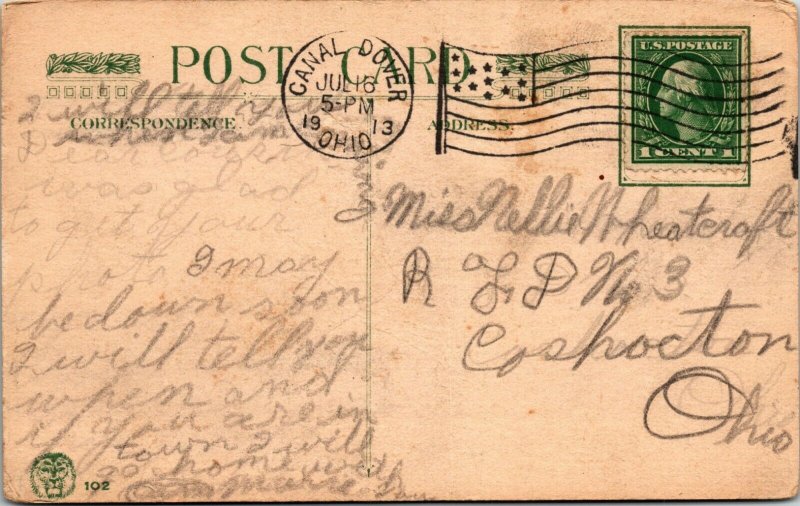 POST CARD
CANAL DOVER
JUL 16
5-PM
1913
OHIO
U.S. POSTAGE
1 CENT 1
CORRESPONDENCE.
ADDRESS.
I will tell you
Dear
was glad
to get your
photo I may
be down soon
I will tell you
when and
if you are in
town I will
go home
Miss Nellie Wheatcraft
R F D No 3
Coshocton
Ohio
102